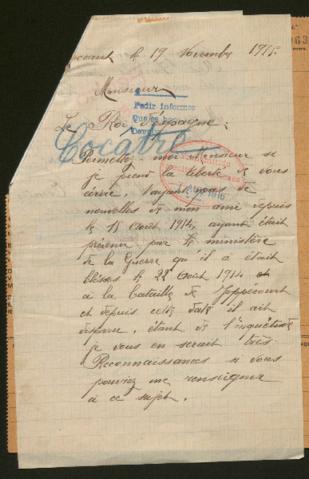 le 19 Novembre 1915
Monsieur
Pedir informes
Le Roi d'Espagne,
Cocatre
Permettez-moi Monsieur si
je prend la liberté de vous
écrire. N'ayant pas de
nouvelles de mon ami depuis
le 15 Août 1914, ayant était
prévenu par le ministère
de la Guerre qu'il a était
blessés le 28 Août 1914 et
a la bataille de
et depuis cette date il ait
disparue, étant dé l'inquiétude
je vous en serait très
Reconnaissances si vous
pouviez me renseigner
à ce sujet.